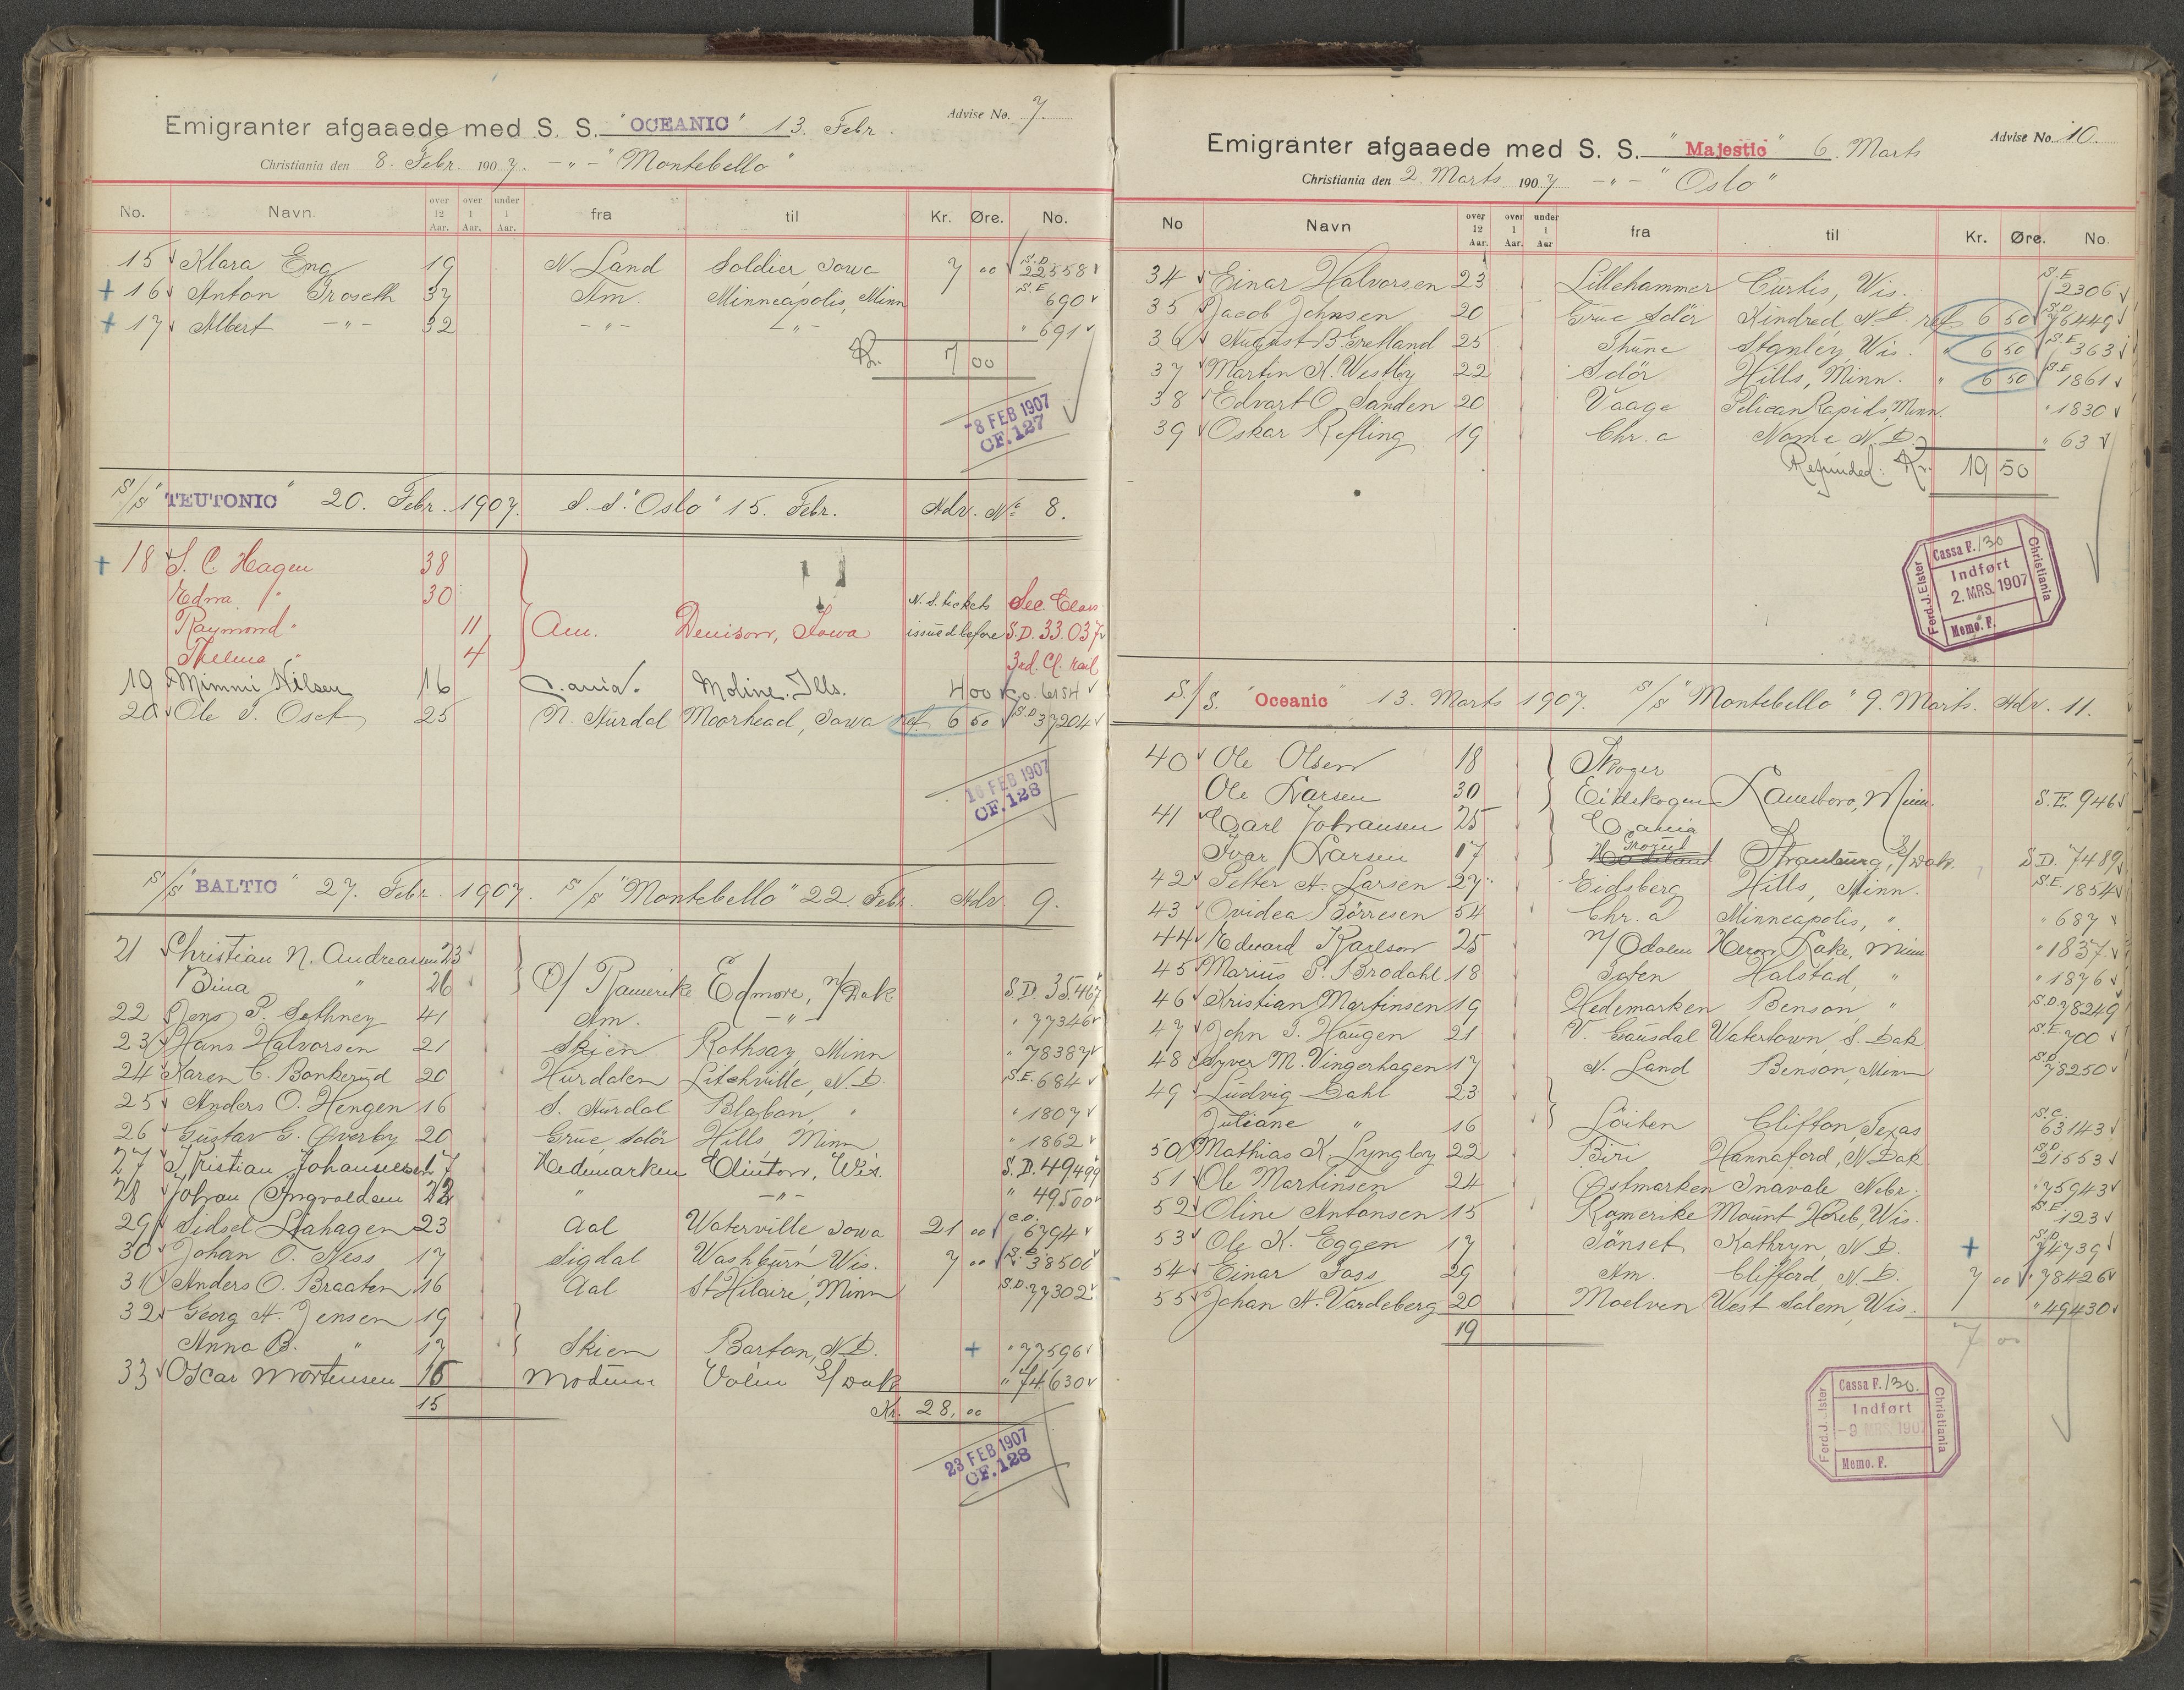 Emigranter afgaaede med S. S. "OCEANIC" 13. Febr. Advise No. 7.
Christiania den 8. Febr. 1907. -"- "Montebello"
No. Navn over 12 Aar. over 1 Aar. under 1 Aar. fra til Kr. Øre. No.
15 Klara Eng 19 N. Land Soldier, Iowa 7 00 S.D. 22558
+ 16 Anton Troseth 37 Am. Minneapolis, Minn S.E. 690
+ 17 Albert -"- 32 -"- -"- " 691
Kr. 7 00
-8 FEB 1907
CF. 127
S/S "TEUTONIC" 20. Febr. 1907. S.S. "Oslo" 15. Febr. Adv. No 8.
+ 18 S. C. Hagen 38
Edna " 30 N.S. tickets Sec. Class
Raymond " 11 Am. Denison, Iowa issued before S.D. 33.037
Thelma " 4 3rd. Cl. rail
19 Mimmi Nilsen 16 Moline. Ills. 400 6154
20 Ole I. Oset 25 N. Hurdal Moorhead, Iowa ref. 6 50 S.D. 37204
FEB 1907
CF. 128
S/S "BALTIC" 27. Febr. 1907. S/S "Montebello" 22. Febr. Adv. 9.
21 Christian N. Andreasen 23
Bina " 26 Ø/ Ramerike Edmore, N/Dak S.D. 35467
22 Jens P. Sethney 41 Am. -"- " 77346
23 Hans Halvorsen 21 Skien Rothsay, Minn " 78387
24 Karen C. Bonkerud 20 Hurdalen Litchville, N.D. S.E. 684
25 Anders O. Hengen 16 S. Aurdal Blabon, " " 1807
26 Gustav G. Øverby 20 Grue, Solör Hills, Minn " 1862
27 Kristian Johannessen 17 Hedemarken Clinton, Wis. S.D. 49499
28 Johan Ingvaldsen 22 " -"- " 49500
29 Sidsel Liahagen 23 Aal Waterville Iowa 21 00 C.O. 6794
30 Johan O. Ness 17 Sigdal Washburn Wis. 7 00 38506
31 Anders O. Braaten 16 Aal St Hilaire, Minn S.D. 77302
32 Georg A. Jensen 19
Anna B. " 17 Skien Barton, N.D. + " 77596
33 Oscar Mortensen 16 Modum Volin S/Dak " 74630
15 Kr. 28,00
23 FEB 1907
CF. 128
Emigranter afgaaede med S. S. "Majestic" 6. Marts Advise No. 10.
Christiania den 2. Marts 1907 -"- "Oslo"
No Navn over 12 Aar. over 1 Aar. under 1 Aar fra til Kr. Øre. No.
34 Einar Halvorsen 23 Lillehammer Curtis, Wis. S.E. 2306
35 Jacob Johnsen 20 Grue Solör Kindred, N.D. ref. 6 50 S.D. 76449
36 August B. Gretland 25 Thune Stanley, Wis. " 6 50 S.E. 363
37 Martin K. Westby 22 Solör Hills, Minn. " 6 50 S.E. 1861
38 Edvart O. Sanden 20 Vaage Pelican Rapids, Minn. " 1830
39 Oskar Refling 19 Chr.a Nome N.D. " 63
Refunded: Kr. 19 50
Cassa F. 130
Indført
2. MRS. 1907
Memo. F.
Ferd. J. Elster
Christiania
S/S. "Oceanic" 13. Marts 1907. S/S "Montebello" 9. Marts. Adv. 11.
40 Ole Olsen 18 Skoger
Ole Larsen 30 Eidskogen Lanesboro, Minn. S.E. 946
41 Carl Johansen 25
Ivar Larsen 17 S/Dak. S.D. 7489
42 Petter A. Larsen 27 Eidsberg Hills, Minn. S.E. 1854
43 Ovidea Börresen 54 Chr.a Minneapolis, " " 687
44 Edward Karlson 25 N/Odalen Heron Lake, Minn " 1837
45 Marius P. Brodahl 18 Halstad, " " 1876
46 Kristian Martinsen 19 Hedemarken Benson, " S.D. 78249
47 John I. Haugen 21 V. Gausdal Watertown, S. Dak S.E. 700
48 Syver M. Vingerhagen 17 N. Land Benson, Minn S.D. 78250
49 Ludvig Dahl 23
Juliane " 16 Löiten Clifton, Texas S.C. 63143
50 Mathias K. Lyngby 22 Biri Hannaford, N Dak S.D. 21553
51 Ole Martinsen 24 Østmarken Inavale Nebr. " 75943
52 Oline Antonsen 15 Romerike Mount Horeb, Wis. S.E. 123
53 Ole K. Eggen 17 Tönset Kathryn, N.D. + S.D. 74739
54 Einar Foss 29 Am. Clifford, N.D. 7 00 " 78426
55 Johan A. Vardeberg 20 Moelven West Salem, Wis. " 49430
19 7 00
Cassa F. 130.
Indført
-9 MRS 1907
Memo. F.
Ferd. J. Elster
Christiania